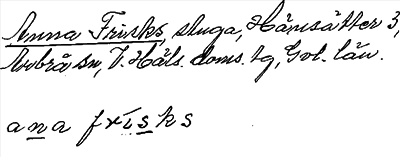 Anna Frisks, stuga, Hämsätter 3,
Arbrå sn, V. Häls. doms. tg, Gvl. län.
ana frisks